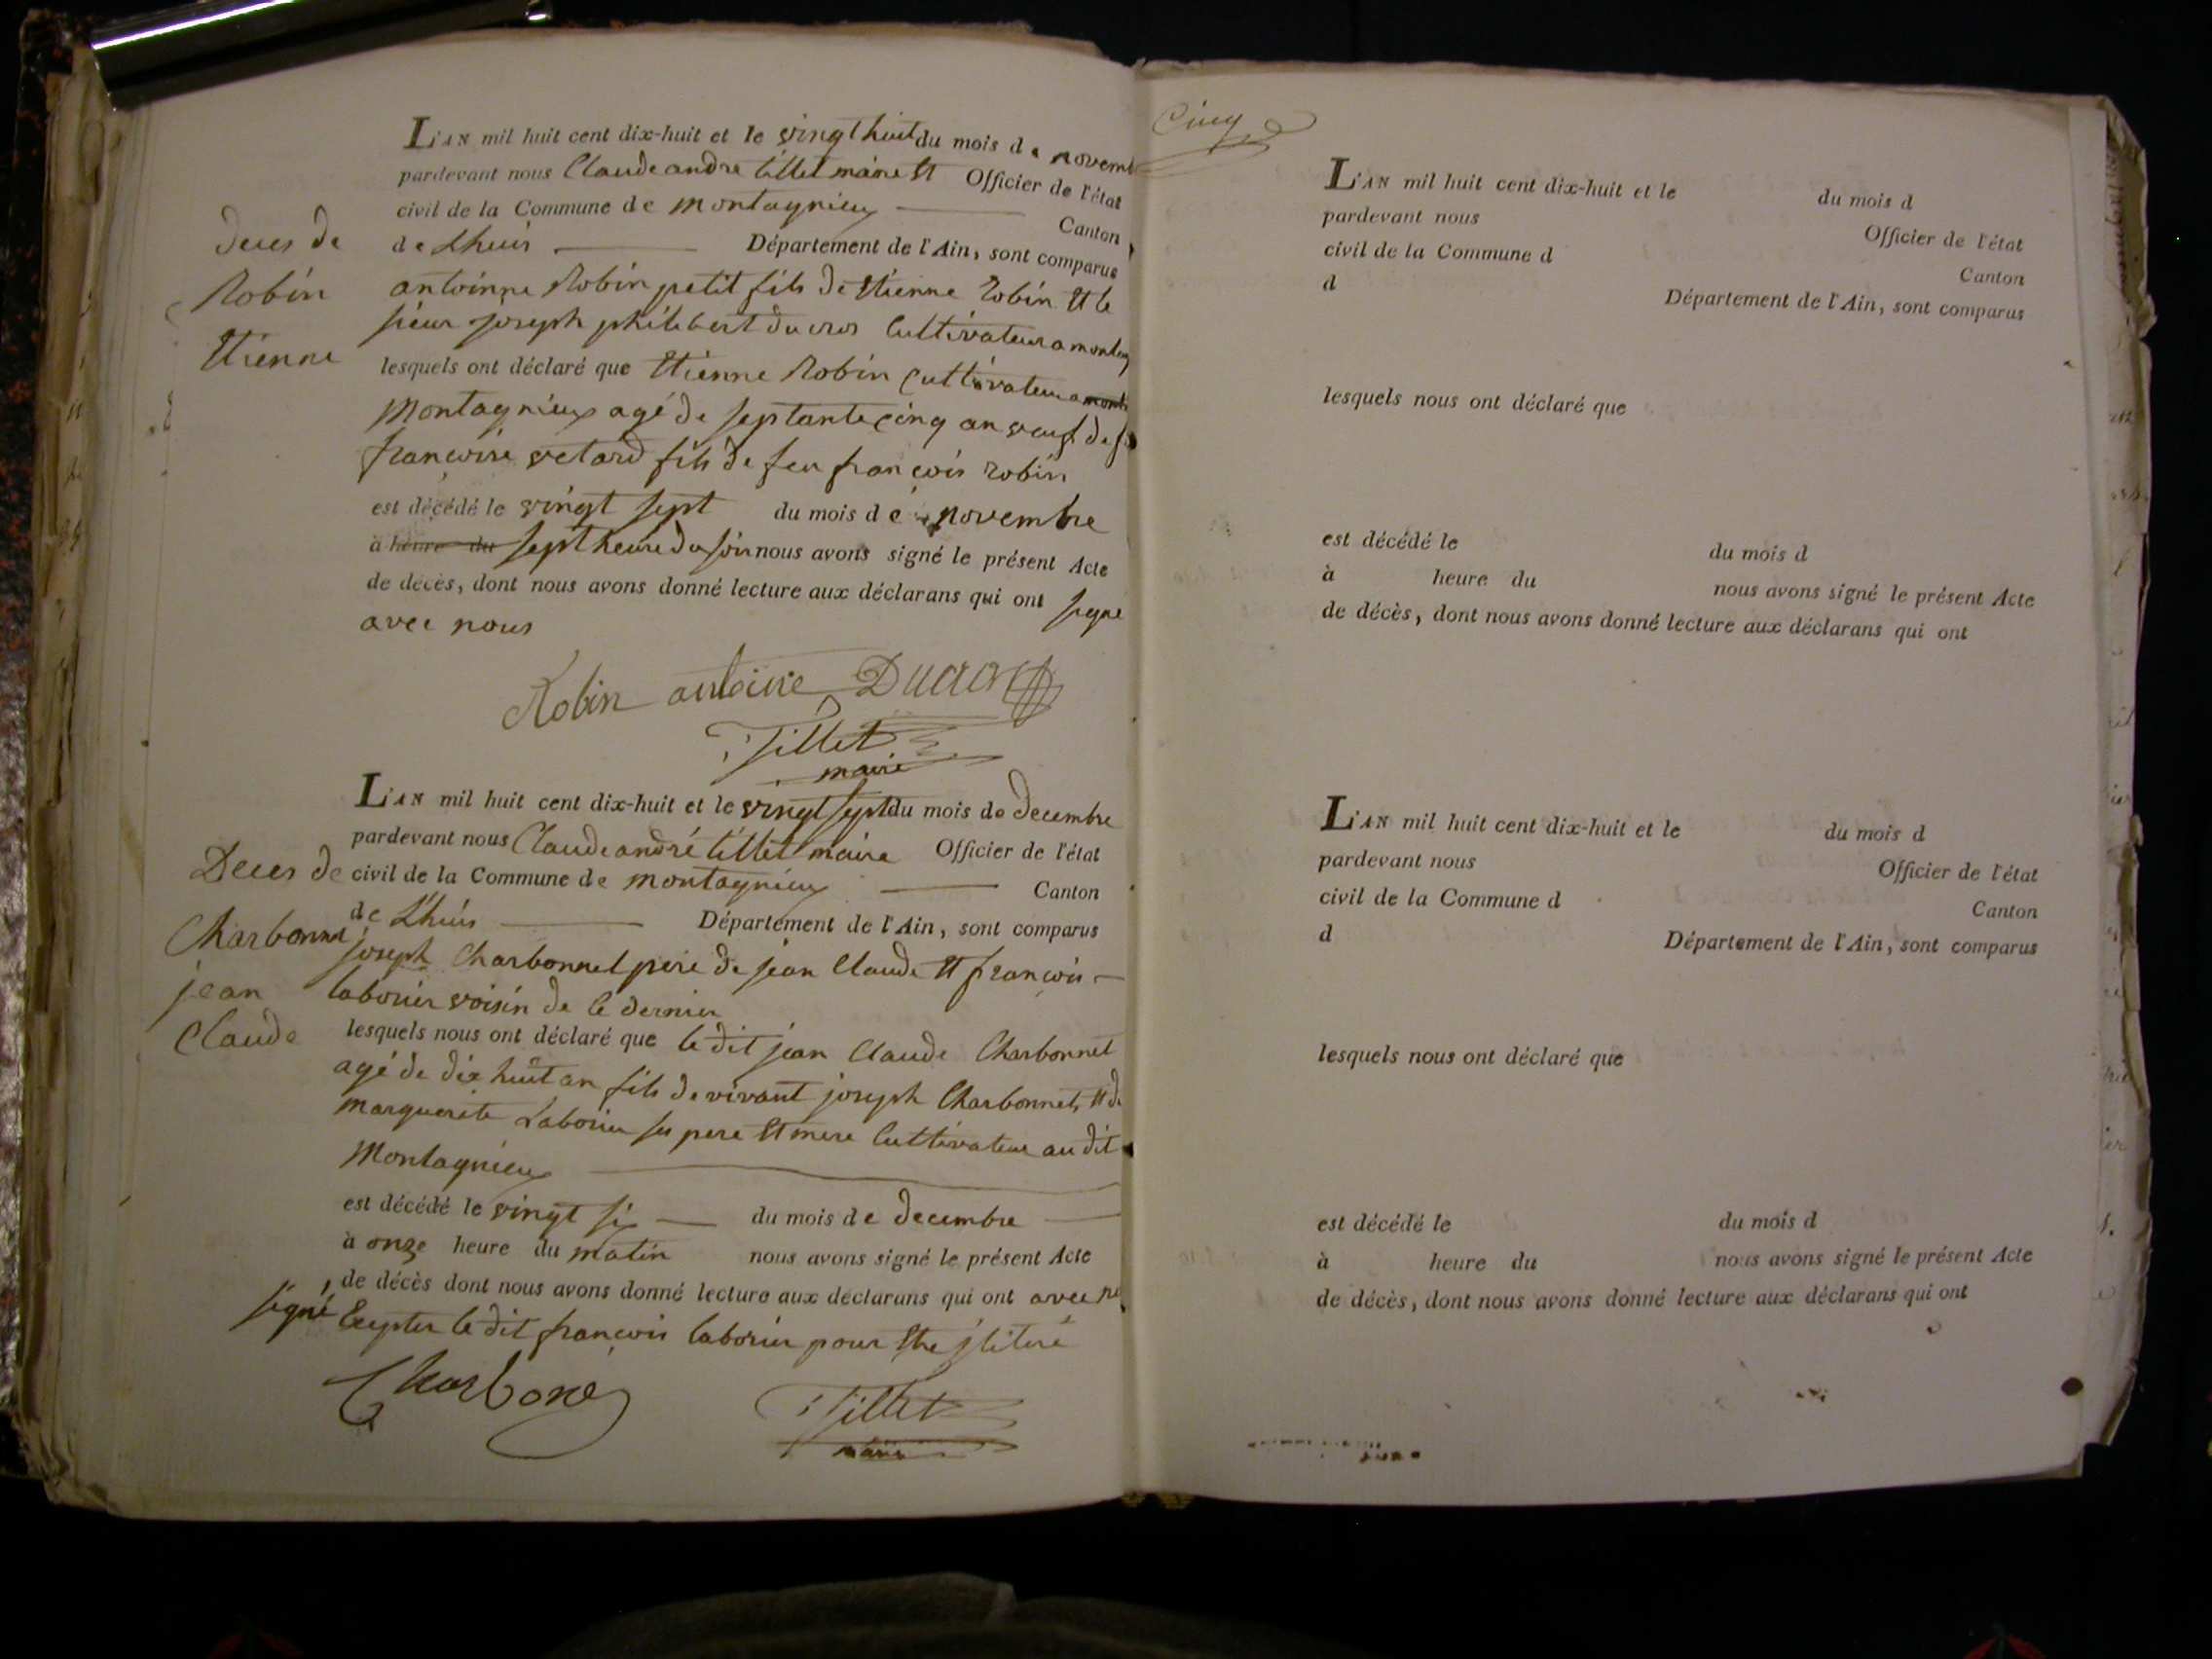 L'AN mil huit cent dix-huit et le vingt huit du mois de novemb
pardevant nous Claude andre tillet maire et Officier de l'état
civil de la Commune de montagnieu Canton
de Lhuis Département de l'Ain, sont comparus
deces de
Robin
Etienne
antoinne Robin petit fils de Etienne Robin et le
sieur joseph philibert ducros Cultivateur a montag
lesquels ont déclaré que Etienne Robin Cultivateur a
Montagnieux agé de septante cinq an veuf de
francoise vetard fils de feu francois robin
est décédé le vingt sept du mois de novembre
à heure du sept heure du soir nous avons signé le présent Acte
de décès, dont nous avons donné lecture aux déclarans qui ont signé
avec nous
Robin antoine Ducros
Tillet
maire
L'AN mil huit cent dix-huit et le vingt sept du mois de decembre
pardevant nous Claude andré tillet maire Officier de l'état
civil de la Commune de montagnieu Canton
de Lhuis Département de l'Ain, sont comparus
Deces de
Charbonnet
jean
Claude
joseph Charbonnet pere de jean Claude et francois
laborier voisin de le dernier
lesquels nous ont déclaré que le dit jean Claude Charbonnet
agé de dix huit an fils de vivant joseph Charbonnet et de
marguerite Laborier ses pere et mere Cultivateur au dit
Montagnieu
est décédé le vingt six du mois de decembre
à onze heure du matin nous avons signé le présent Acte
de décès dont nous avons donné lecture aux déclarans qui ont avec
signé Excepter le dit francois laborier pour être iliteré
Charboné
Tillet
maire
Cinq
L'AN mil huit cent dix-huit et le du mois d
pardevant nous Officier de l'état
civil de la Commune d Canton
d Département de l'Ain, sont comparus
lesquels nous ont déclaré que
est décédé le du mois d
à heure du nous avons signé le présent Acte
de décès, dont nous avons donné lecture aux déclarans qui ont
L'AN mil huit cent dix-huit et le du mois d
pardevant nous Officier de l'état
civil de la Commune d Canton
d Département de l'Ain, sont comparus
lesquels nous ont déclaré que
est décédé le du mois d
à heure du nous avons signé le présent Acte
de décès, dont nous avons donné lecture aux déclarans qui ont